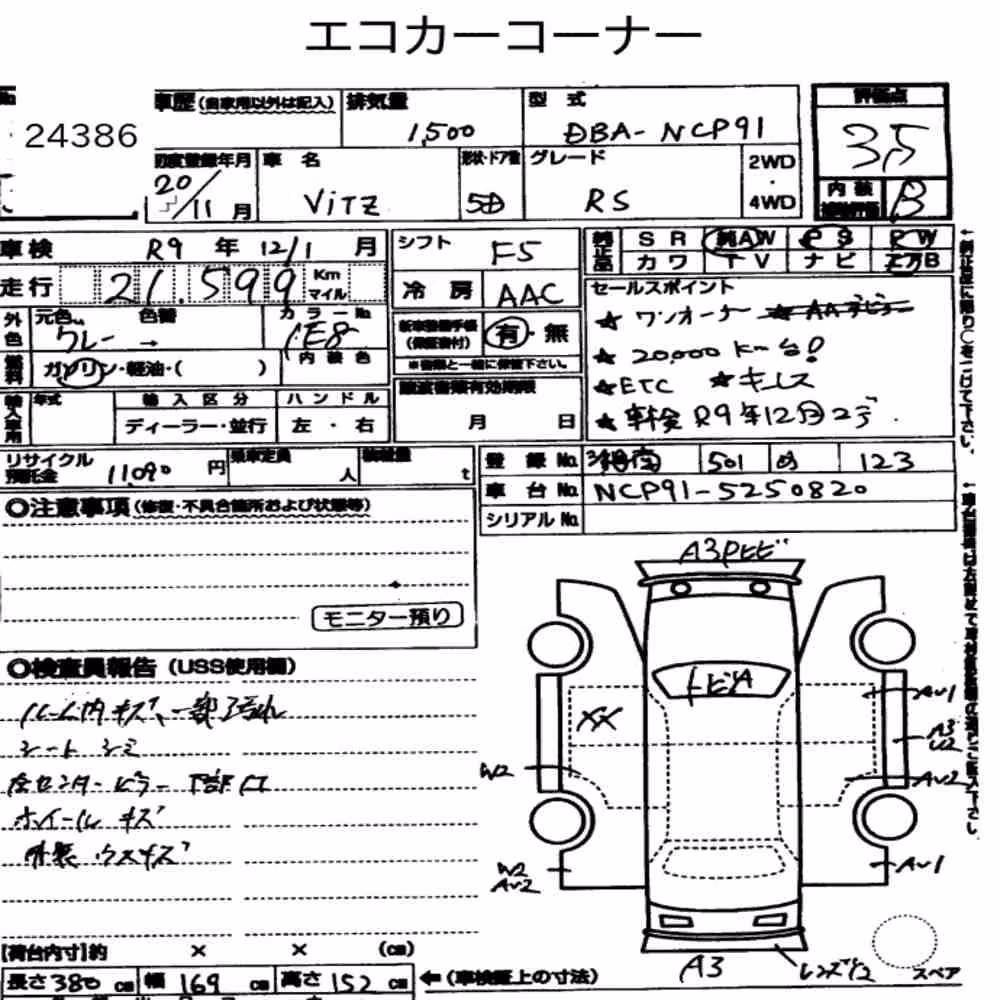 エコカーコーナー
24386
車歴(自家用以外は記入) 排気量 型式 評価点
1,500 DBA-NCP91 3.5
初度登録年月 車名 形状・ドア数 グレード 2WD・4WD 内装 補助評価
20/11月 VITZ 5D RS B
車検 R9年12/1月 シフト F5 純正品 SR 純AW PS PW
走行 21,599 Km マイル 冷房 AAC カワ TV ナビ エアB
外色 元色 グレー → 色替 カラーNo 1E8 内装色
燃料 ガソリン・軽油・( )
新車整備手帳(保証書付) 有・無
※書類と一緒に保管下さい。
セールスポイント
★ワンオーナー ★AAデビュー
★20,000Km台!
★ETC ★キーレス
★車検R9年12月迄
輸入車用 年式 輸入区分 ハンドル 譲渡書類有効期限
ディーラー・並行 左・右 月 日
リサイクル預託金 11,090円 乗車定員 人 積載量 t
登録No. 501 め 123
車台No. NCP91-5250820
シリアルNo.
◎注意事項(修復・不具合箇所および状態等)
モニター預り
◎検査員報告(USS使用欄)
ルーム内キズ、一部汚れ
シート シミ
左センターピラー下部凹
ホイール キズ
外装 ウスキズ
A3Pヒビ
トビA
XX
AU1
A3
U2
W2
AU2
W2
AU2
AU1
A3
レンズヒビ
スペア
【荷台内寸】約 × × (cm)
長さ380cm 幅169cm 高さ152cm ←(車検証上の寸法)